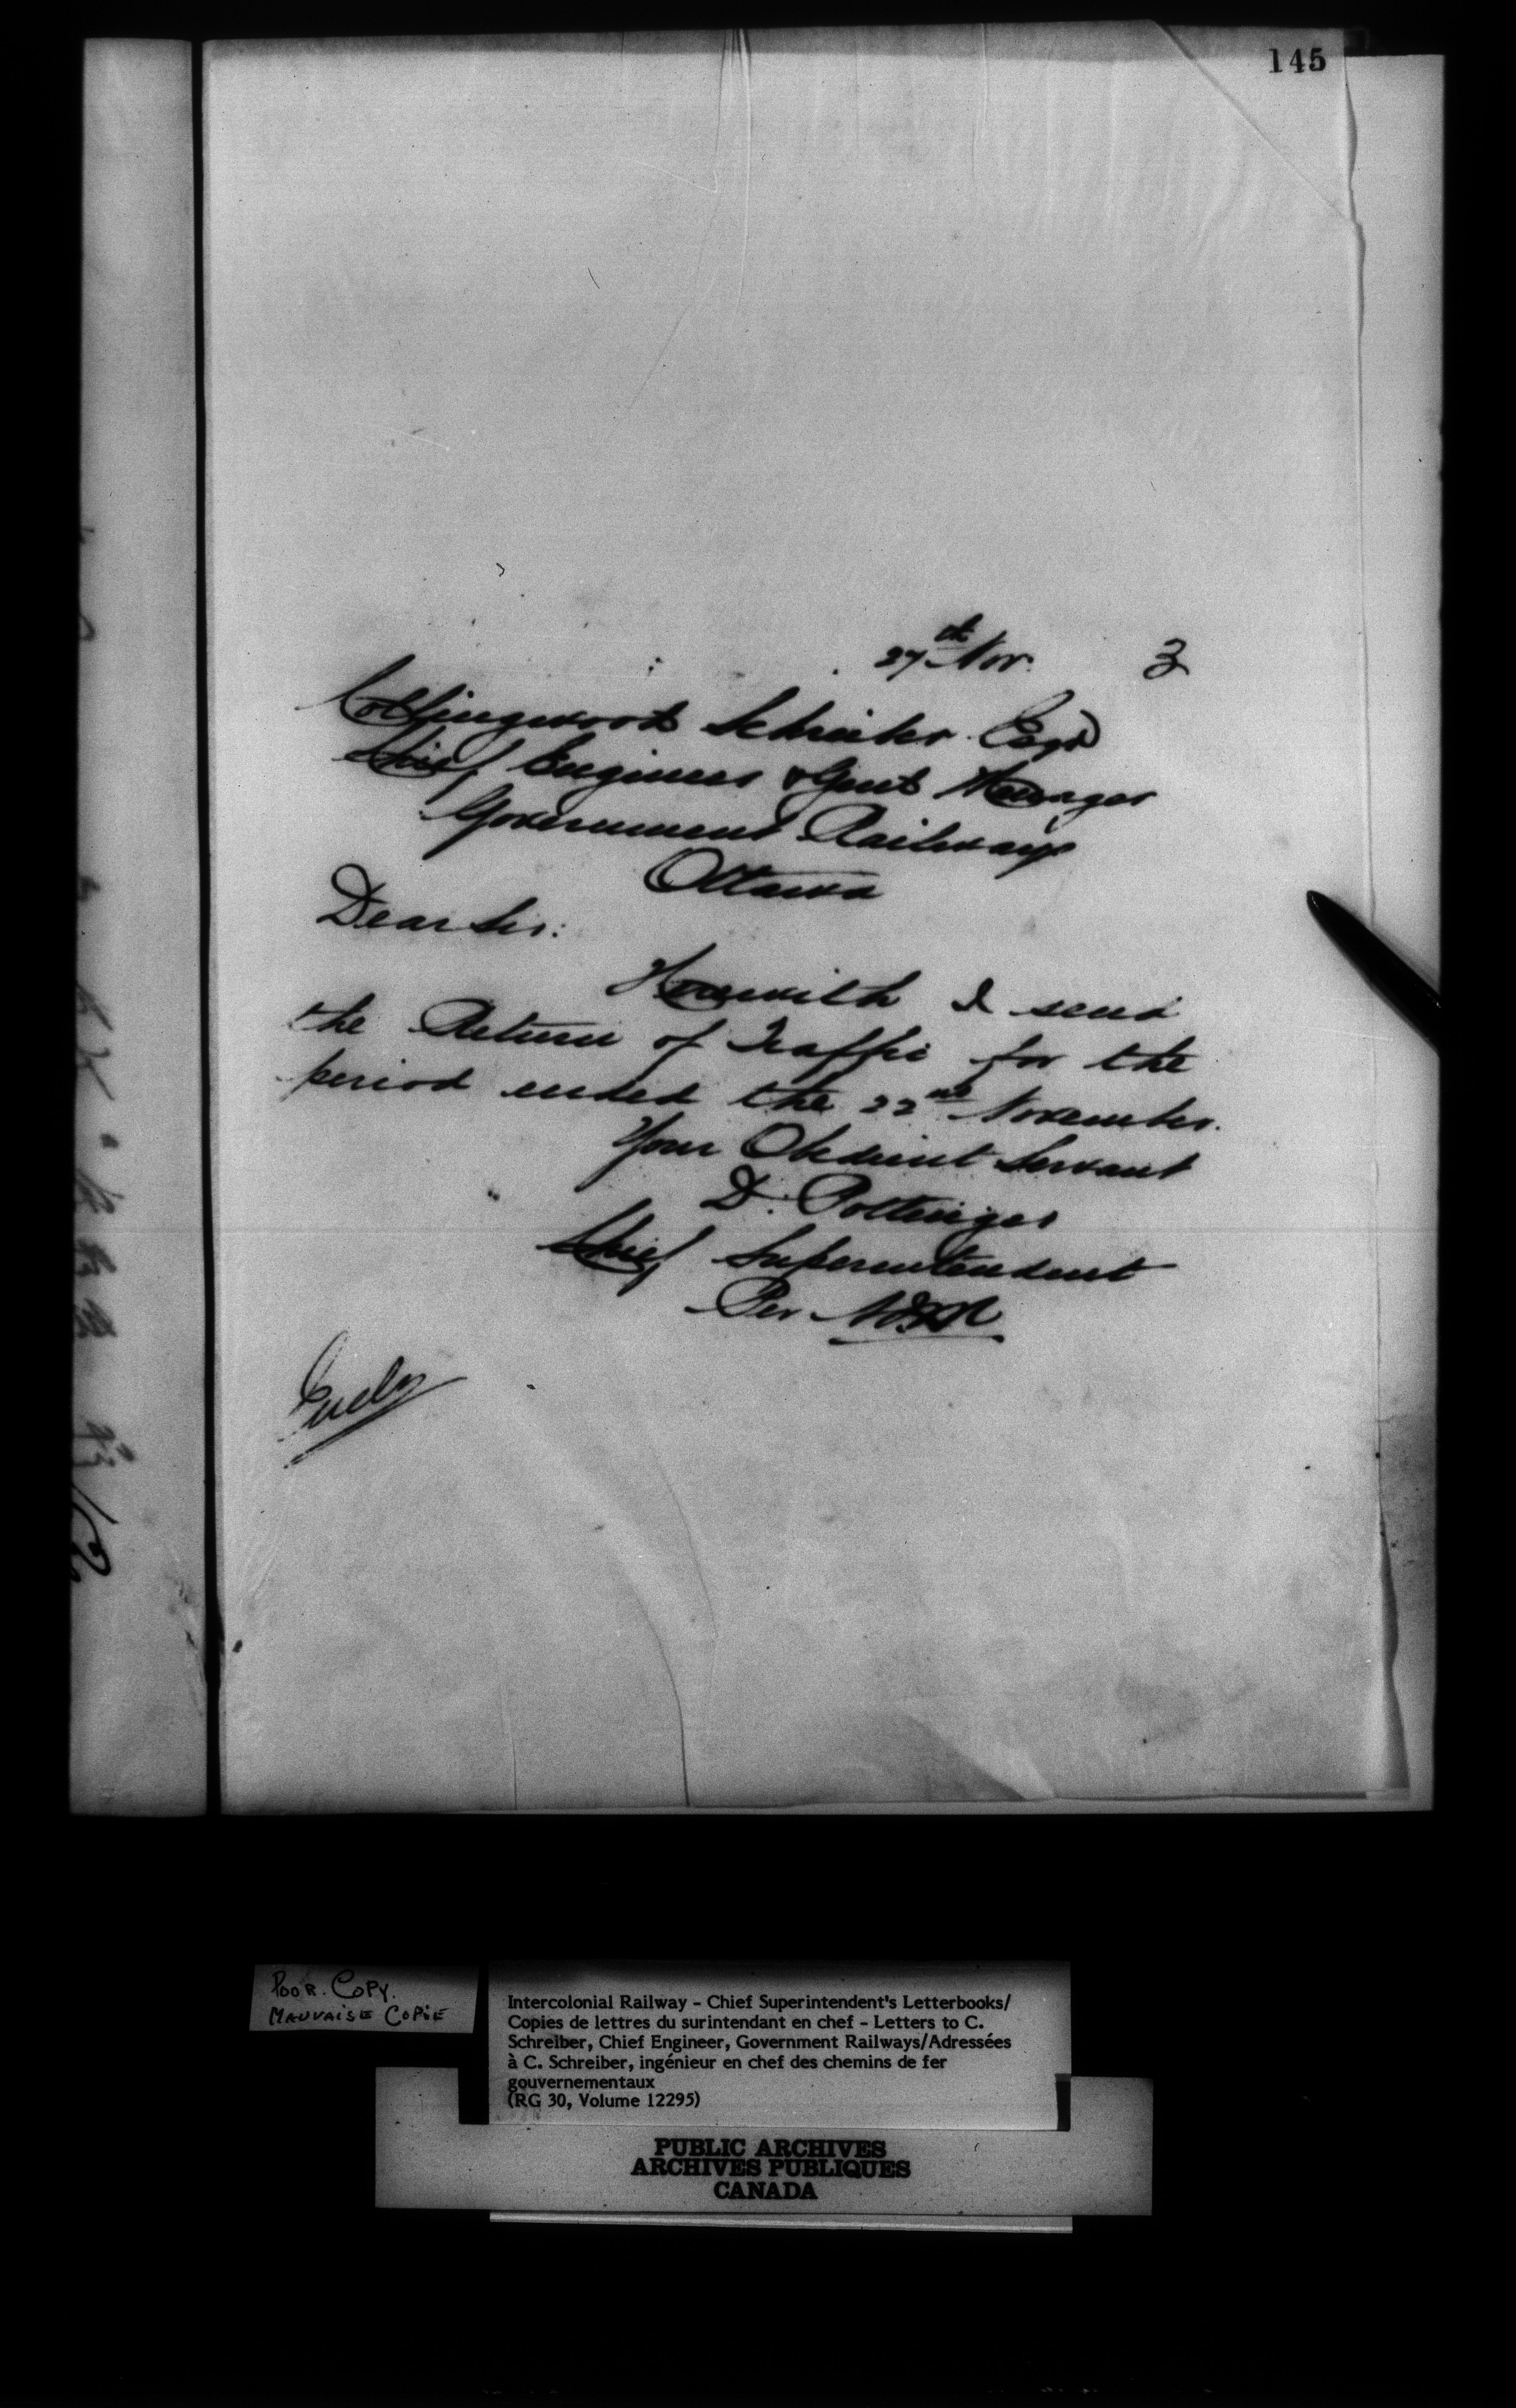 145
27th Nov. 3
Collingwood Schreiber Esqr
Chief Engineer & Genl Manager
Government Railways
Ottawa
Dear Sir:
Herewith I send
the Return of Traffic for the
period ended the 22nd November.
Your Obedient Servant
D. Pottinger
Chief Superintendent
Per
Encl
POOR. COPY.
MAUVAISE COPIE
Intercolonial Railway - Chief Superintendent's Letterbooks/
Copies de lettres du surintendant en chef - Letters to C.
Schreiber, Chief Engineer, Government Railways/Adressées
à C. Schreiber, ingénieur en chef des chemins de fer
gouvernementaux
(RG 30, Volume 12295)
PUBLIC ARCHIVES
ARCHIVES PUBLIQUES
CANADA